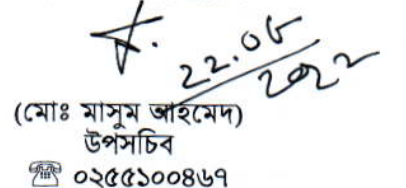 22.06
2022
(মোঃ মাসুম আহমেদ)
উপসচিব
☎ ০২৫৫১০০৪৬৭